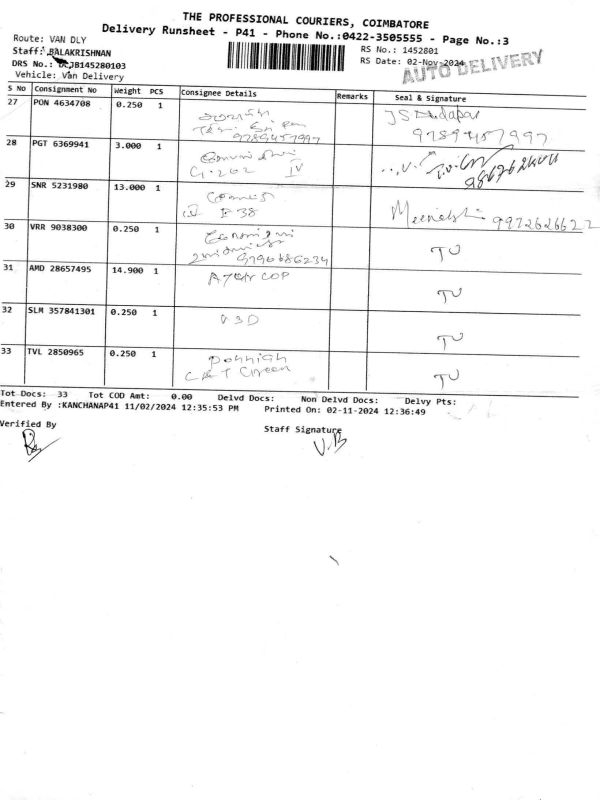 THE PROFESSIONAL COURIERS, COIMBATORE
Delivery Runsheet - P41 - Phone No.:0422-3505555 - Page No.:3
Route: VAN DLY
RS No.: 1452801
Staff: BALAKRISHNAN
RS Date: 02-Nov-2024
AUTO DELIVERY
DRS No.: JB145280103
Vehicle: Van Delivery
S No Consignment No Weight PCS Consignee Details Remarks Seal & Signature
27 PON 4634708 0.250 1
9789457997 9789457997
28 PGT 6369941 3.000 1
G.202 IV
29 SNR 5231980 13.000 1
IV B 38 9972626622
30 VRR 9038300 0.250 1
9790686234 TU
31 AMD 28657495 14.900 1
COP TU
32 SLM 357841301 0.250 1
V3D TU
33 TVL 2850965 0.250 1
Green TU
Tot Docs: 33 Tot COD Amt: 0.00 Delvd Docs: Non Delvd Docs: Delvy Pts:
Entered By :KANCHANAP41 11/02/2024 12:35:53 PM Printed On: 02-11-2024 12:36:49
Verified By
Staff Signature
V.B